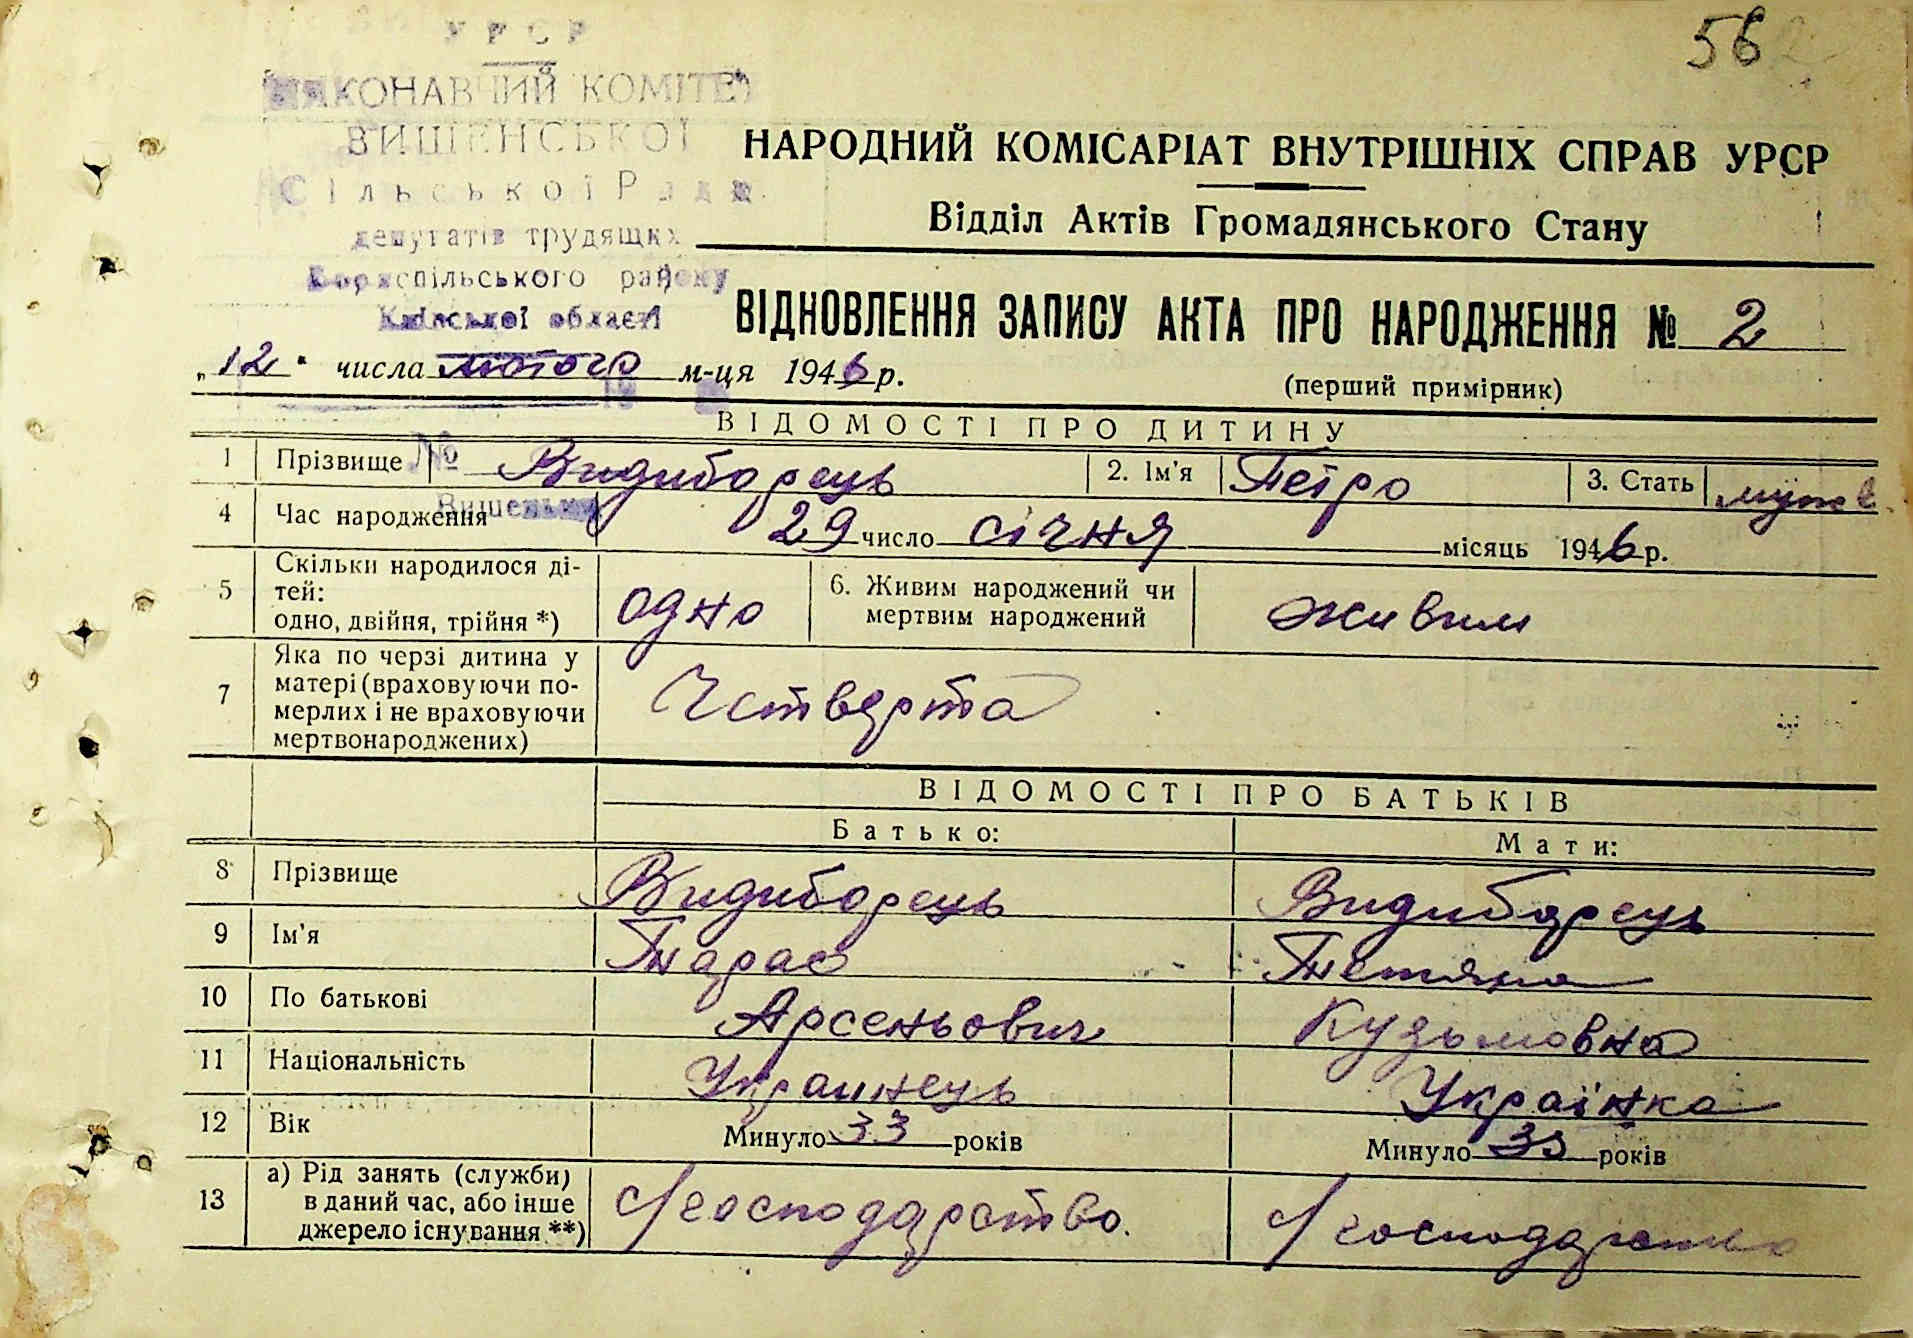 56
УРСР
ВИКОНАВЧИЙ КОМІТЕТ
ВИШЕНСЬКОЇ
Сільської Ради
депутатів трудящих
Бориспільського району
Київської області
НАРОДНИЙ КОМІСАРІАТ ВНУТРІШНІХ СПРАВ УРСР
Відділ Актів Громадянського Стану
ВІДНОВЛЕННЯ ЗАПИСУ АКТА ПРО НАРОДЖЕННЯ № 2
"12" числа лютого м-ця 1946 р.
(перший примірник)
ВІДОМОСТІ ПРО ДИТИНУ
1 Прізвище № Видиборець 2. Ім'я Петро 3. Стать муж
4 Час народження 29 число січня місяць 1946 р.
5 Скільки народилося ді-
тей:
одно, двійня, трійня *) одно 6. Живим народжений чи
мертвим народжений живим
7 Яка по черзі дитина у
матері (враховуючи по-
мерлих і не враховуючи
мертвонароджених) Четверта
ВІДОМОСТІ ПРО БАТЬКІВ
Батько: Мати:
8 Прізвище Видиборець Видиборець
9 Ім'я Тарас Тетяна
10 По батькові Арсеньович Кузьмовна
11 Національність Украинець Українка
12 Вік Минуло 33 років Минуло 33 років
13 а) Рід занять (служби)
в даний час, або інше
джерело існування **) с/господарство. с/господарство